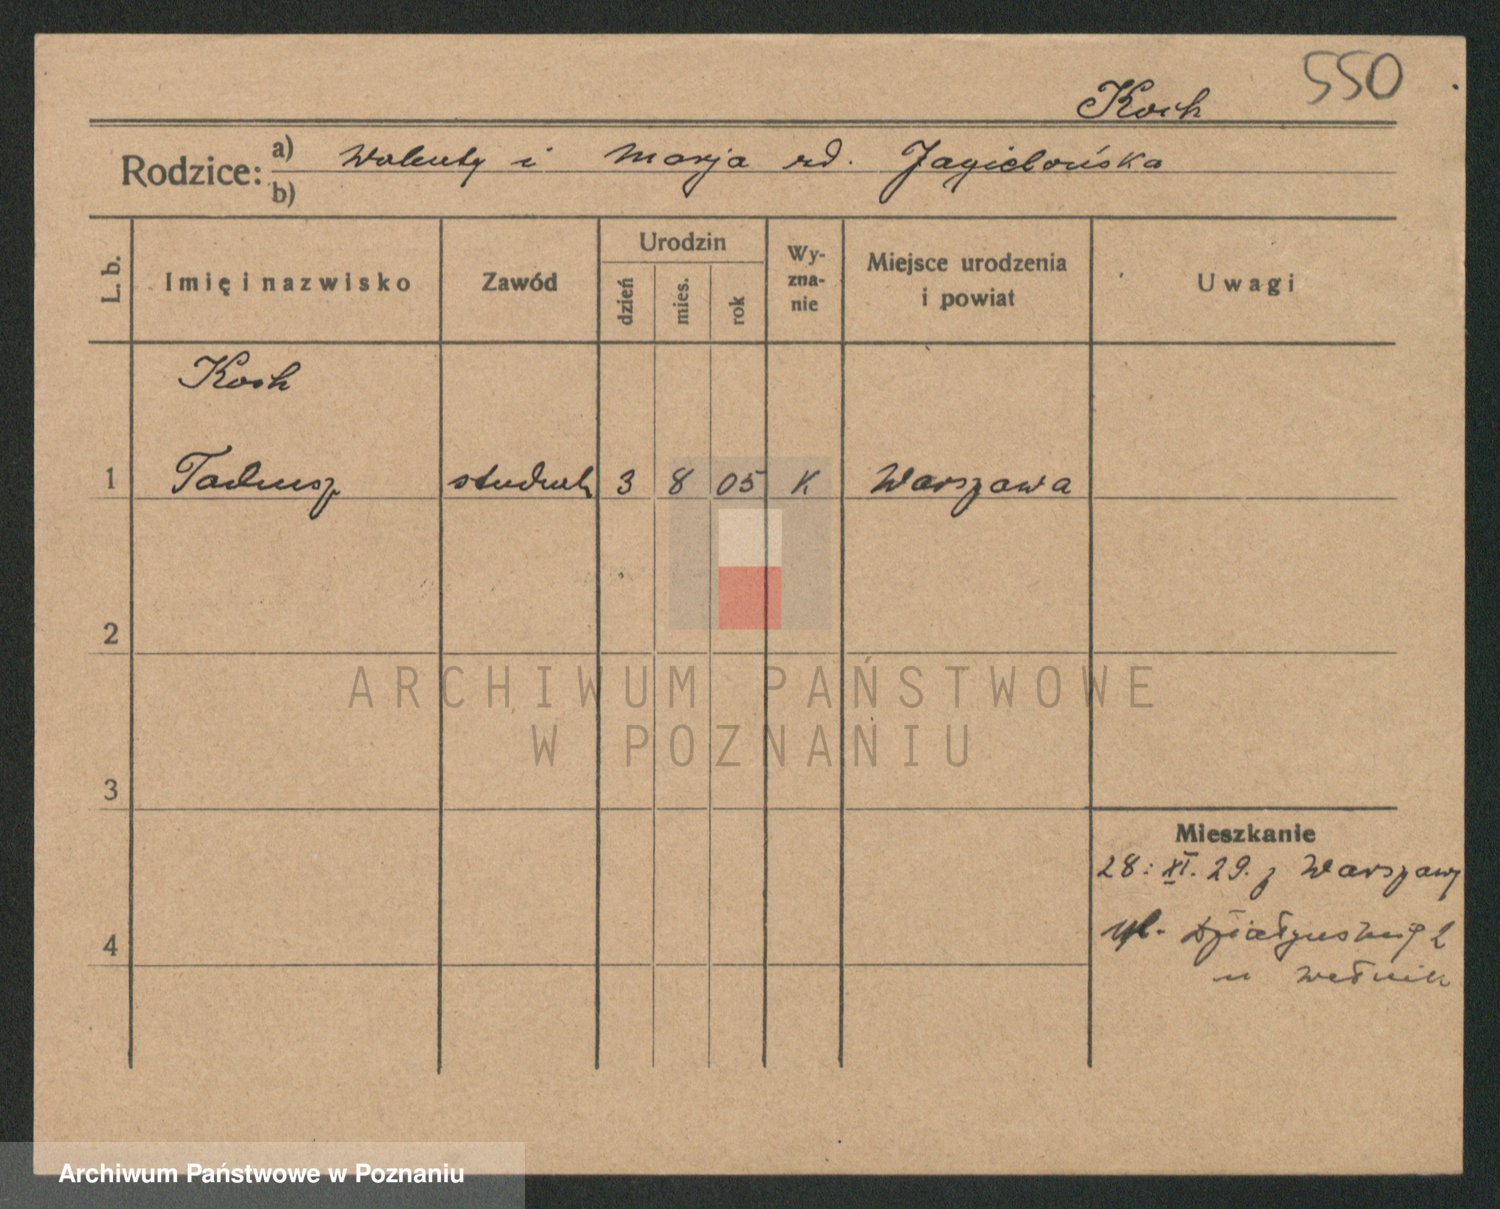 550
Koch
Rodzice: a) Walenty i Marja rd. Jagielońska
b)
L. b.
Imię i nazwisko
Zawód
Urodzin
dzień
mies.
rok
Wy-
zna-
nie
Miejsce urodzenia
i powiat
Uwagi
Koch
1 Tadeusz student 3 8 05 K Warszawa
2
3
4
Mieszkanie
28. XI. 29. z Warszawy
ul. Działyńskich 2
u
ARCHIWUM PAŃSTWOWE
W POZNANIU
Archiwum Państwowe w Poznaniu